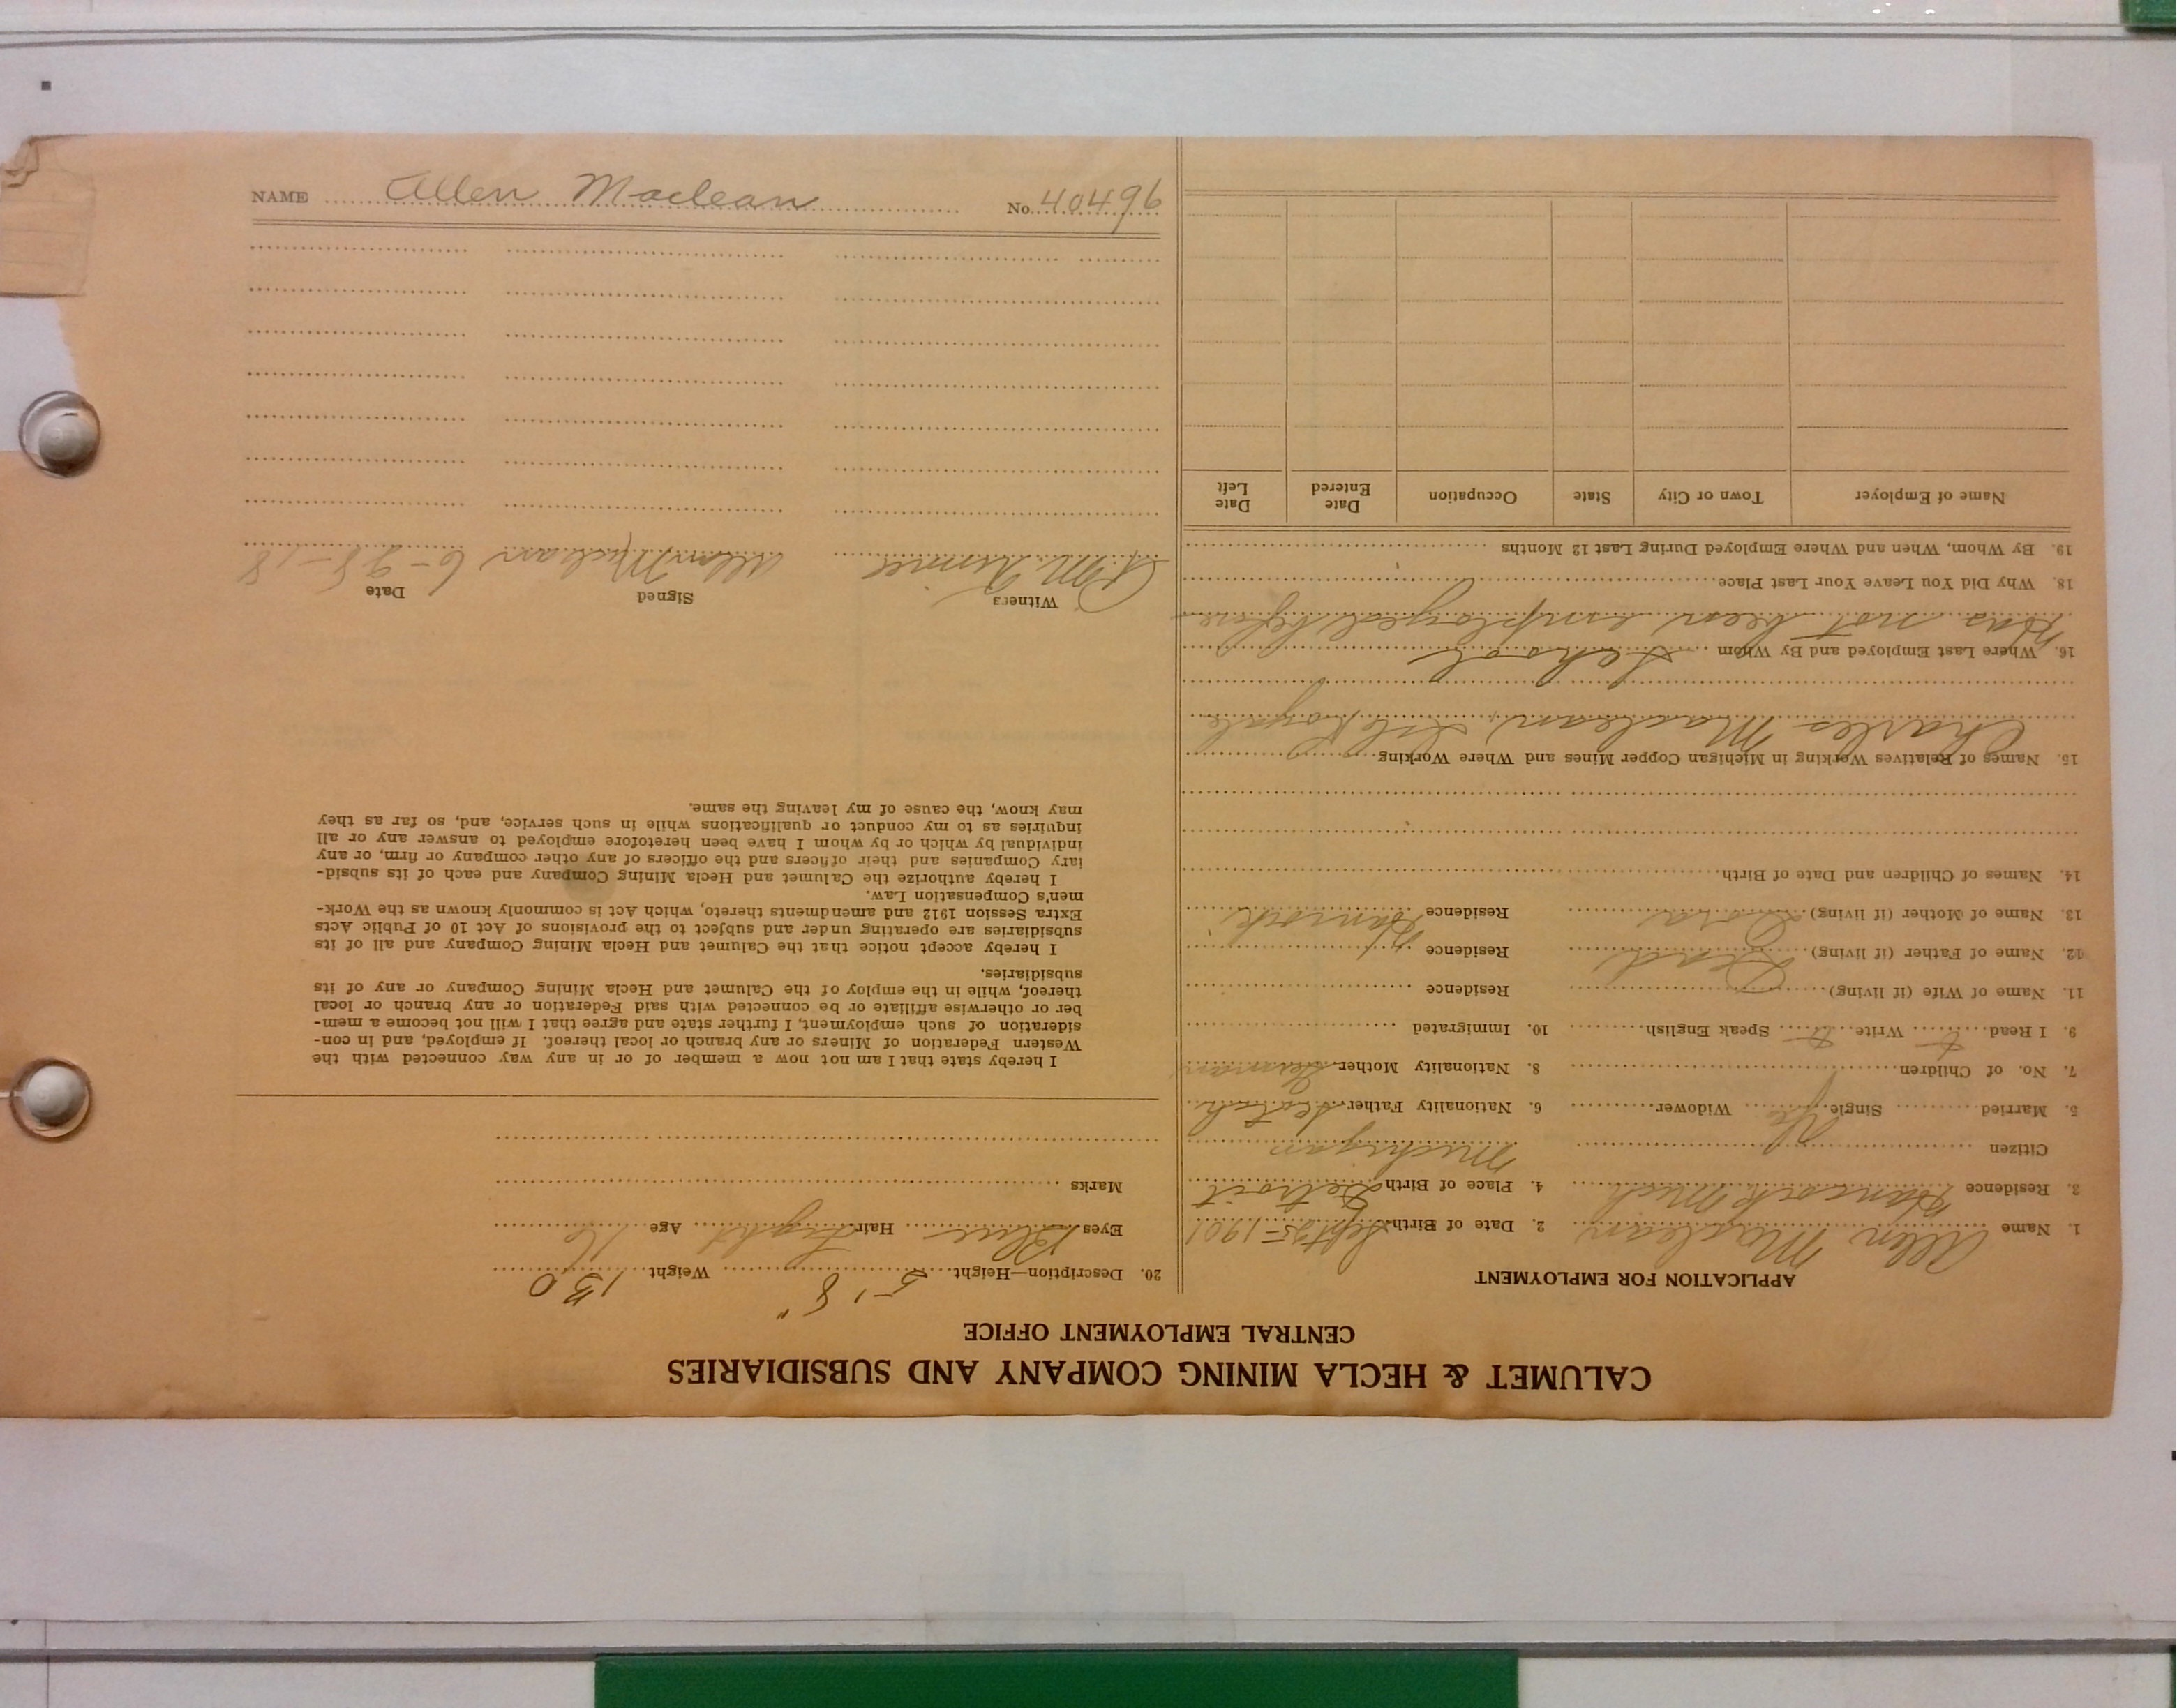 CALUMET & HECLA MINING COMPANY AND SUBSIDIARIES
CENTRAL EMPLOYMENT OFFICE
APPLICATION FOR EMPLOYMENT
1. Name Allen Maclean 2. Date of Birth Sept 25-1901
3. Residence Hancock Mich 4. Place of Birth Detroit
Citizen Michigan
5. Married Single Yes Widower 6. Nationality Father Scotch
7. No. of Children 8. Nationality Mother German
9. I Read Write Speak English 10. Immigrated
11. Name of Wife (if living) Residence
12. Name of Father (if living) Dead Residence
13. Name of Mother (if living) Dora Residence Hancock
14. Names of Children and Date of Birth
15. Names of Relatives Working in Michigan Copper Mines and Where Working
Charles Maclean, Isle Royale
16. Where Last Employed and By Whom School
Has not been employed before
18. Why Did You Leave Your Last Place
19. By Whom, When and Where Employed During Last 12 Months
Name of Employer Town or City State Occupation Date Entered Date Left
20. Description—Height 5-'8" Weight 130
Eyes Blue Hair Light Age 16
Marks
I hereby state that I am not now a member of or in any way connected with the
Western Federation of Miners or any branch or local thereof. If employed, and in con-
sideration of such employment, I further state and agree that I will not become a mem-
ber or otherwise affiliate or be connected with said Federation or any branch or local
thereof, while in the employ of the Calumet and Hecla Mining Company or any of its
subsidiaries.
I hereby accept notice that the Calumet and Hecla Mining Company and all of its
subsidiaries are operating under and subject to the provisions of Act 10 of Public Acts
Extra Session 1912 and amendments thereto, which Act is commonly known as the Work-
men's Compensation Law.
I hereby authorize the Calumet and Hecla Mining Company and each of its subsid-
iary Companies and their officers and the officers of any other company or firm, or any
individual by which or by whom I have been heretofore employed to answer any or all
inquiries as to my conduct or qualifications while in such service, and, so far as they
may know, the cause of my leaving the same.
Witness Signed Date
Allen Maclean 6-28-18
NAME Allen Maclean No. 40496